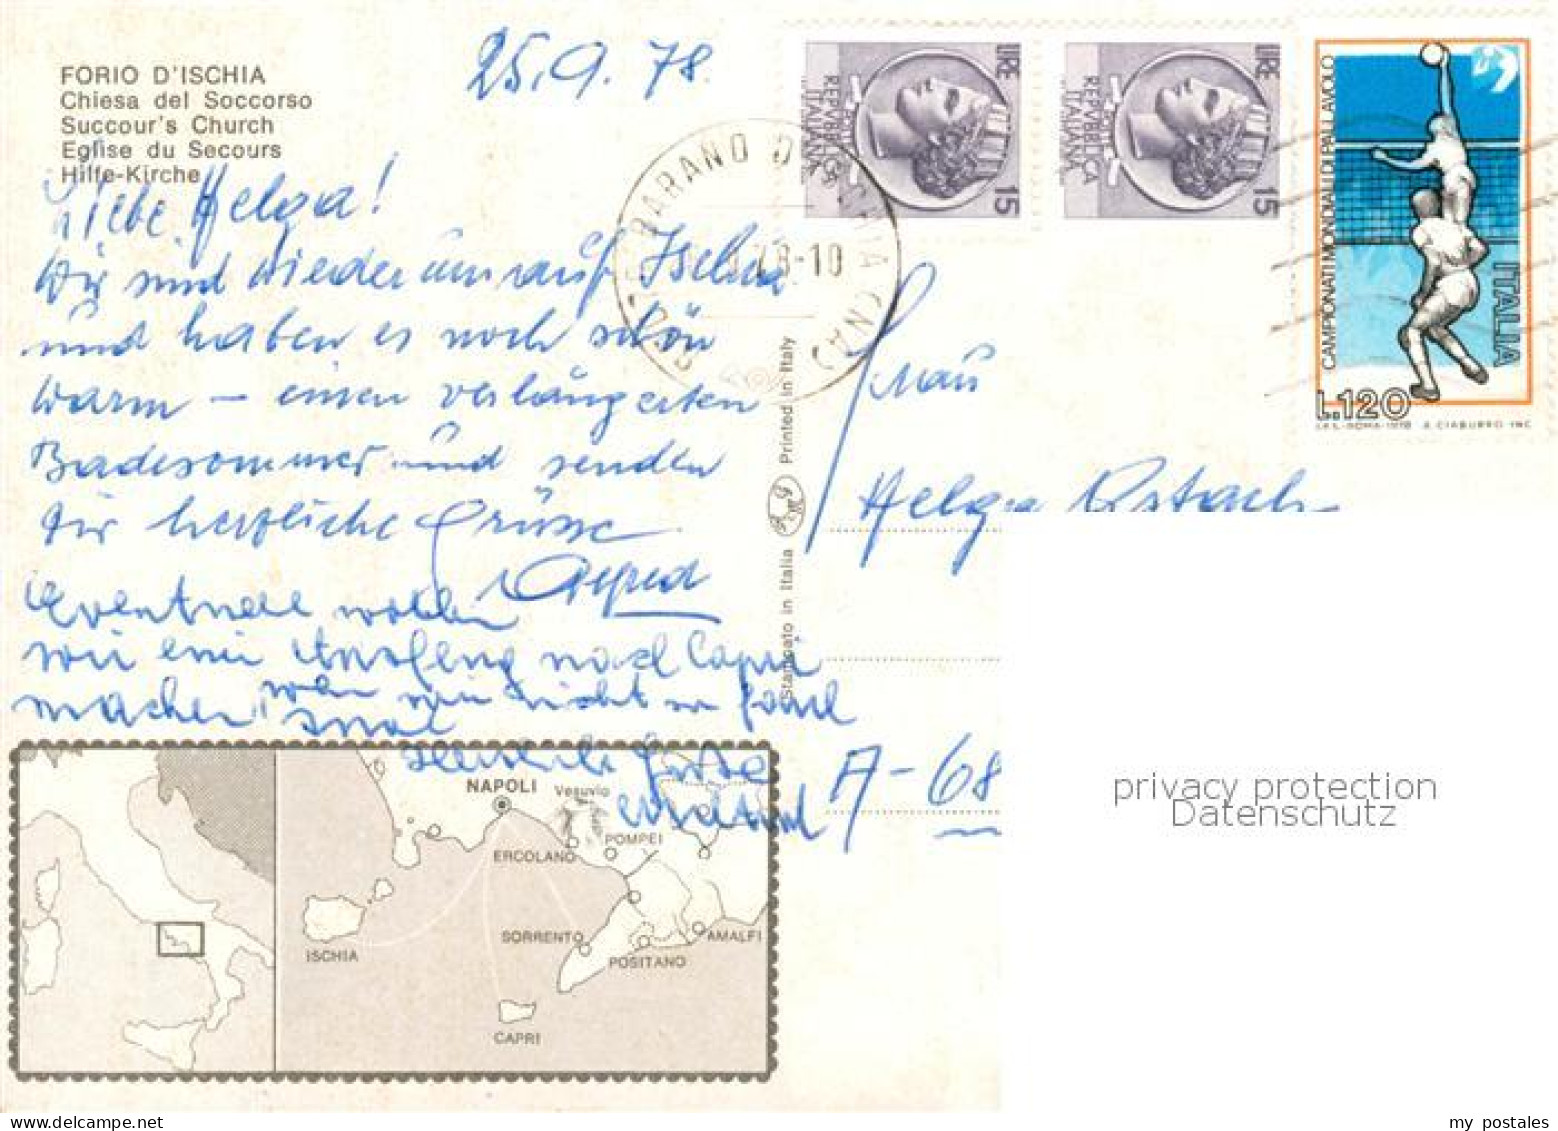 25.9.78
FORIO D'ISCHIA
Chiesa del Soccorso
Succour's Church
Eglise du Secours
Hilfe-Kirche
Liebe Helga!
Wir sind wiederum auf Ischia
und haben es noch schön
warm – einen verlängerten
Badesommer und senden
Dir herzliche Grüsse
Alfred
Eventuell wollen
wir einen Ausflug nach Capri
machen, wenn wir nicht zu faul
sind
Herzliche Grüsse
NAPOLI
Vesuvio
POMPEI
ERCOLANO
SORRENTO
AMALFI
POSITANO
ISCHIA
CAPRI
Stampato in Italia
Printed in Italy
BARANO D'ISCHIA (NA)
78-10
LIRE
REPVBBLICA
ITALIANA
15
LIRE
REPVBBLICA
ITALIANA
15
CAMPIONATI MONDIALI DI PALLAVOLO
ITALIA
L.120
I.P.S.-ROMA-1978 E. CIABURRO INC.
Frau
Helga
A-68
privacy protection
Datenschutz
my postales